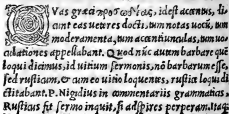 QVas græci προσῳδίας, idest accentus, di
cant eas veteres docti, tum notas vocū, tum
moderamenta, tum accentiunculas, tum vo
culationes appellabant. Quod nūc autem barbare quē
loqui dicimus, id vitium sermonis, nō barbarum esse,
sed rusticum, & cum eo vitio loquentes, rustice loqui di
ctitabant. P. Nigidius in commentariis grammaticis,
Rusticus fit sermo inquit, si adspires perperam. Itaq;